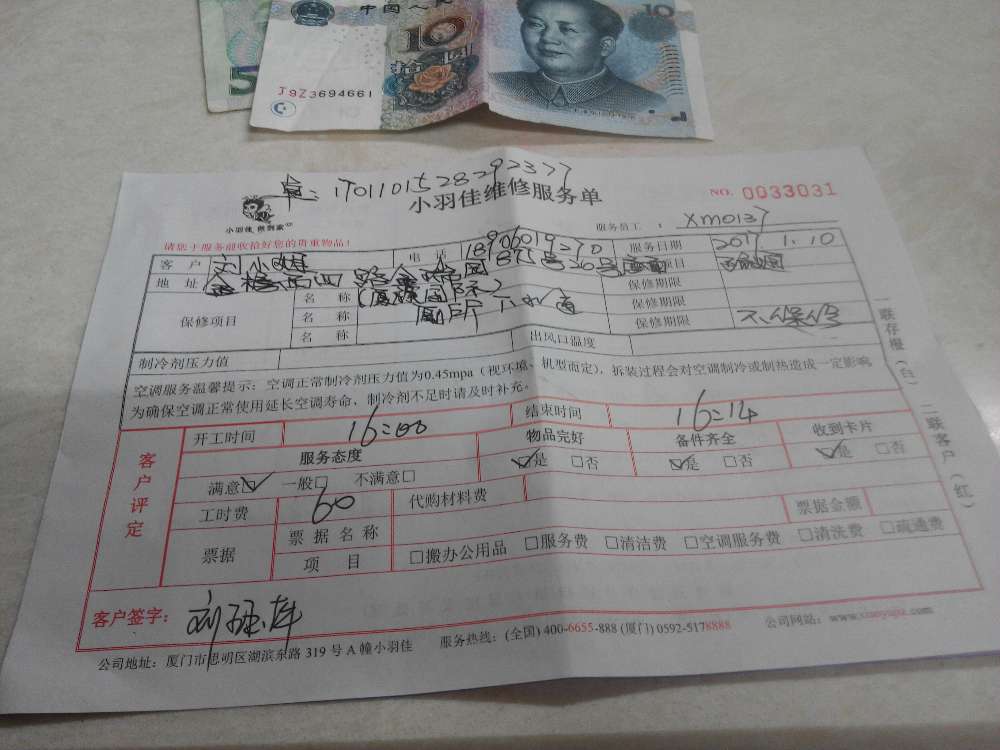 中国人民
10
拾圆
10
5
J9Z3694661
单:1701101528292377
小羽佳维修服务单
NO. 0033031
小羽佳 做到家
请您于服务前收拾好您的贵重物品!
服务员工: XM0137
客 户 刘小姐 电 话 18906019270 服务日期 2017.1.10
地 址
保修项目 名 称 保修期限
名 称 厕所下水道 保修期限
名 称 保修期限 不保修
制冷剂压力值 出风口温度
空调服务温馨提示:空调正常制冷剂压力值为0.45mpa(视环境、机型而定),拆装过程会对空调制冷或制热造成一定影响
为确保空调正常使用延长空调寿命,制冷剂不足时请及时补充。
客户评定
开工时间 16:00 结束时间 16:14
服务态度 物品完好 备件齐全 收到卡片
满意☑ 一般□ 不满意□ ☑是 □否 ☑是 □否 ☑是 □否
工时费 60 代购材料费 票据金额
票据 票据名称
项 目 □搬办公用品 □服务费 □清洁费 □空调服务费 □清洗费 □疏通费
客户签字:
公司地址:厦门市思明区湖滨东路 319 号 A 幢小羽佳 服务热线:(全国) 400-6655-888 (厦门) 0592-5178888 公司网站:
一联存根(白) 二联客户(红)